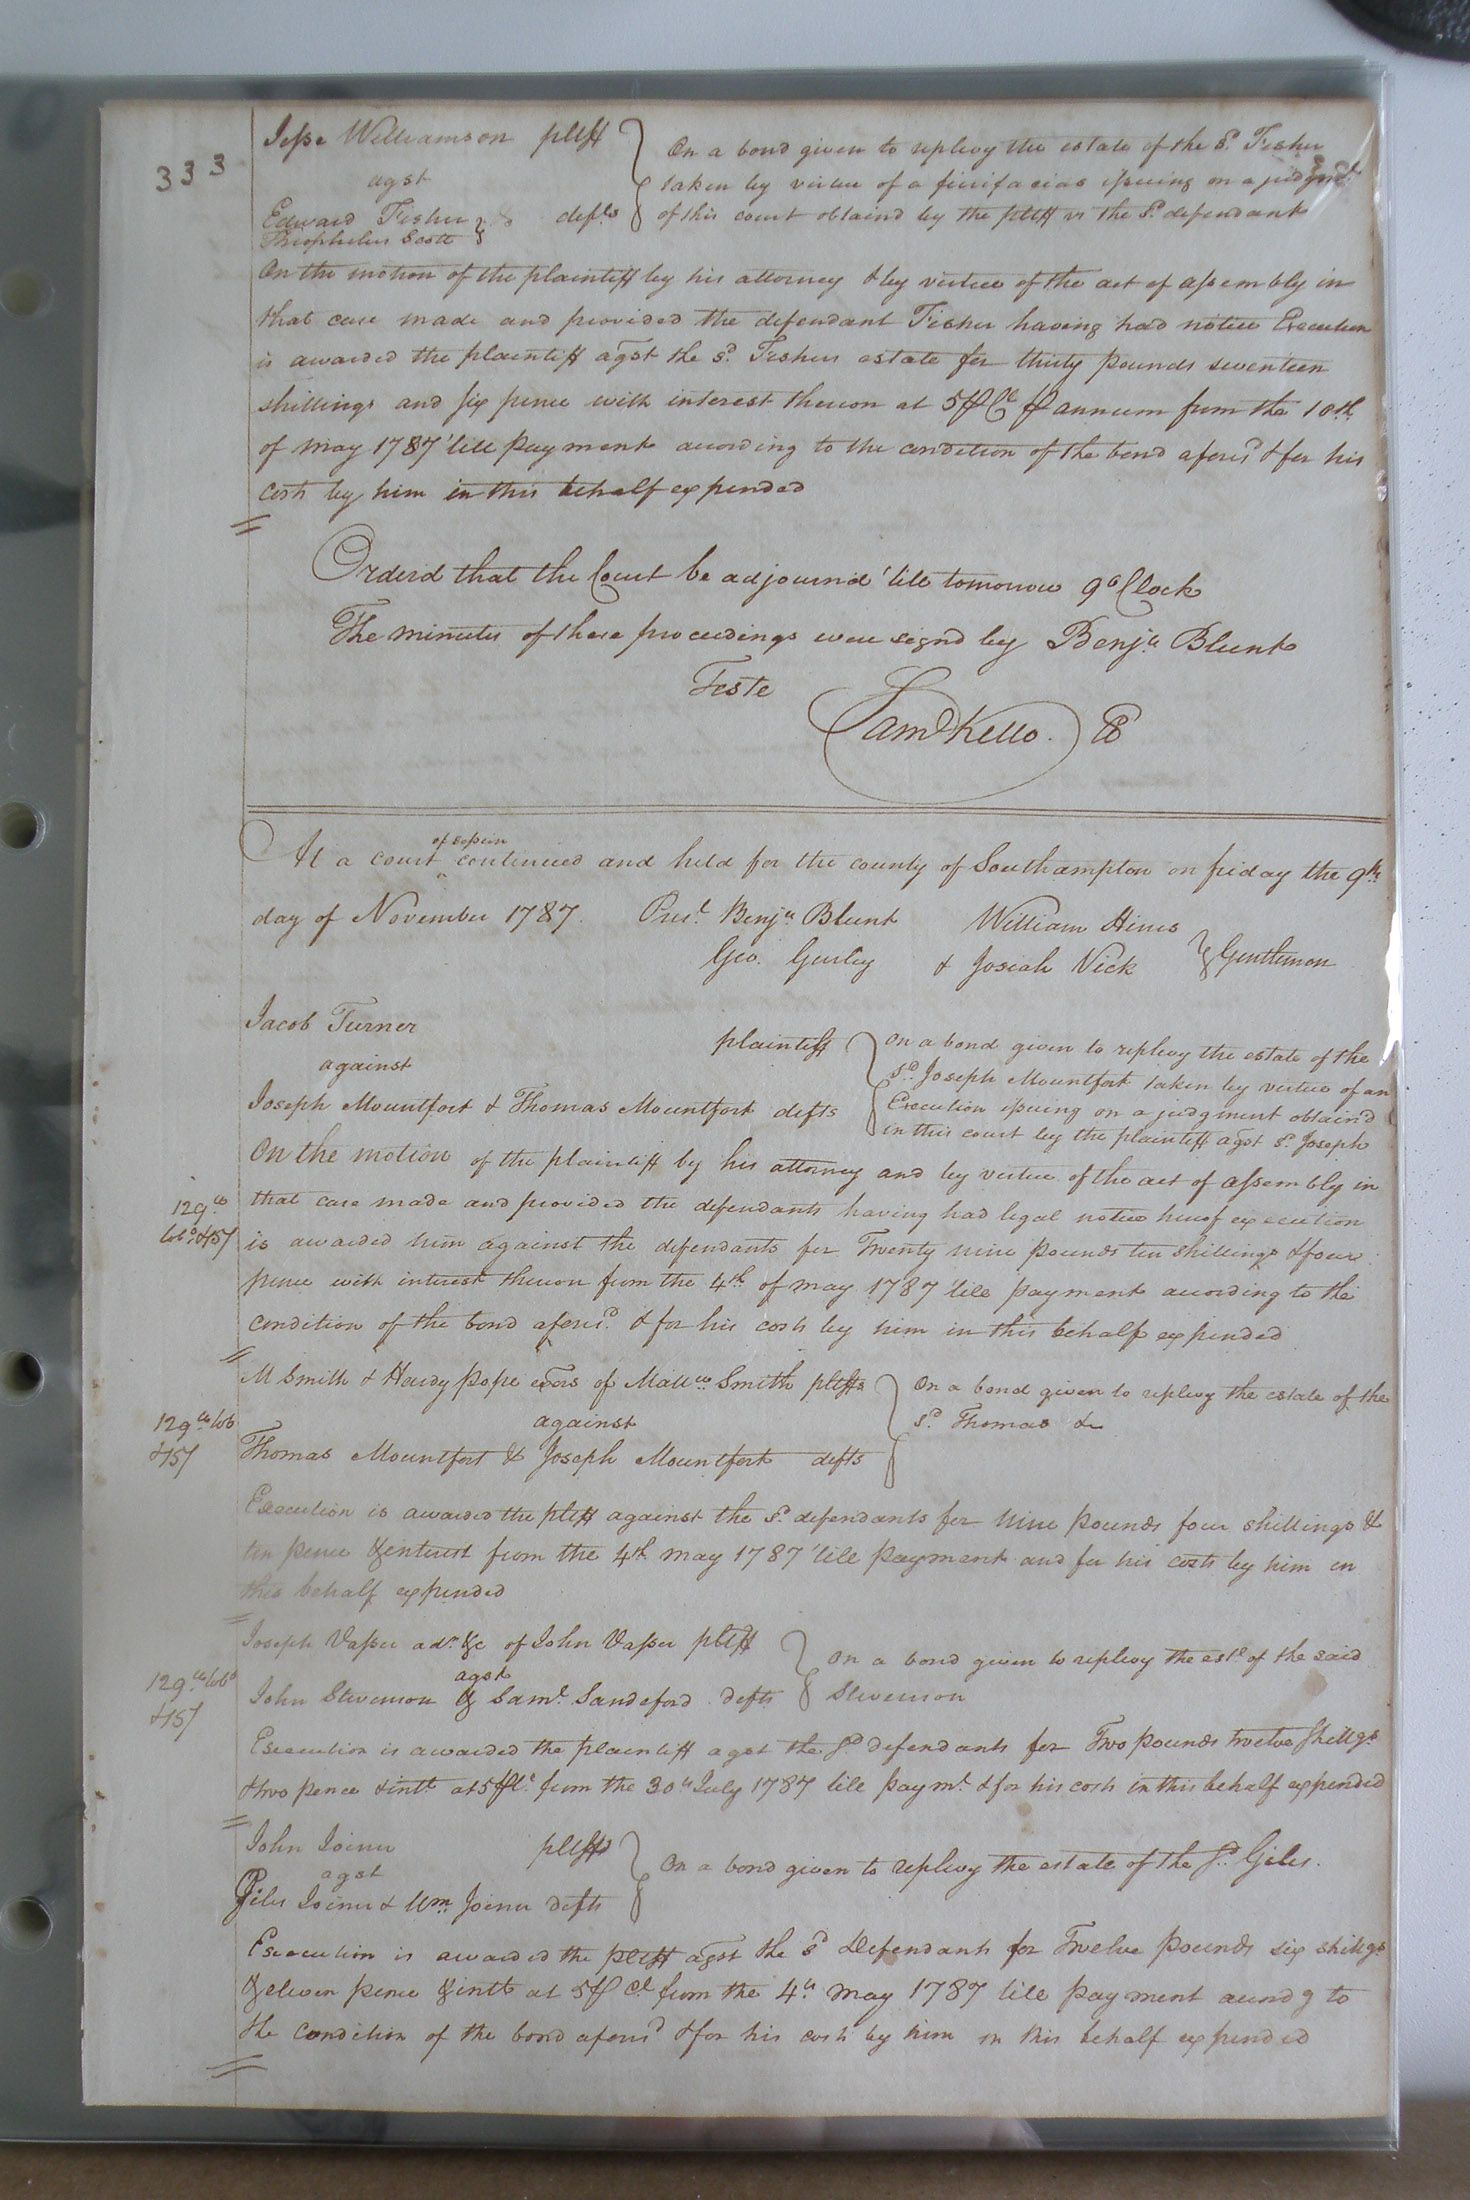 333
Jesse Williamson pltff
agst
Edward Fisher & defts
Theophelus Scott
On a bond given to replevy the estate of the sd. Fisher
taken by virtue of a fierifacias issueing on a judgmt.
of this court obtaind by the pltff vs the sd. defendant
On the motion of the plaintiff by his attorney & by virtue of the act of assembly in
that case made and provided the defendant Fisher having had notice Execution
is awarded the plaintiff agst the sd. Fishers estate for thirty pounds seventeen
shillings and six pence with interest thereon at 5 pr Ct pr annum from the 10th
of may 1787 'till payment according to the condition of the bond aforesd. & for his
costs by him in this behalf expended
Orderd that the Court be adjournd 'till tomorrow 9 oClock
The minutes of these proceedings were signd by Benja Blunt
Teste
Saml Kello. CC
At a court of session continued and held for the county of Southampton on friday the 9th
day of November 1787. Prest. Benja Blunt William Hines
Geo. Gurley & Josiah Vick Gentlemen
Jacob Turner
plaintiff
against
Joseph Mountfort & Thomas Mountfort defts
On a bond given to replevy the estate of the
sd. Joseph Mountfort taken by virtue of an
Execution issueing on a judgment obtaind
in this court by the plaintiff agst sd. Joseph
On the motion of the plaintiff by his attorney and by virtue of the act of assembly in
that case made and provided the defendants having had legal notice hereof execution
is awarded him against the defendants for Twenty nine pounds ten shillings & four
pence with interest thereon from the 4th. of may 1787 'till payment according to the
condition of the bond aforesd. & for his costs by him in this behalf expended
M Smith & Hardy Pope exors of Matt.w Smith pltffs
against
Thomas Mountfort & Joseph Mountfort defts
On a bond given to replevy the estate of the
sd. Thomas &c
Execution is awarded the pltff against the sd. defendants for nine pounds four shillings &
ten pence & interest from the 4th may 1787 'till payment and for his costs by him in
this behalf expended
Joseph Vasser adr. &c of John Vasser pltff
agst
John Stevenson & Saml. Sandeford defts
On a bond given to replevy the este of the said
Stevenson
Execution is awarded the plaintiff agst the sd. defendants for Two pounds twelve shillgs
& two pence & intt. at 5 pr Ct. from the 30th July 1787 till paymt. & for his costs in this behalf expended
John Joiner pltff
agst
Giles Joiner & Wm. Joiner defts
On a bond given to replevy the estate of the sd. Giles.
Execution is awarded the pltff agst the sd Defendants for Twelve pounds six shillgs
& eleven pence & intt at 5 pr Ct. from the 4th. may 1787 till payment accordg to
the condition of the bond aforesd & for his costs by him in this behalf expended